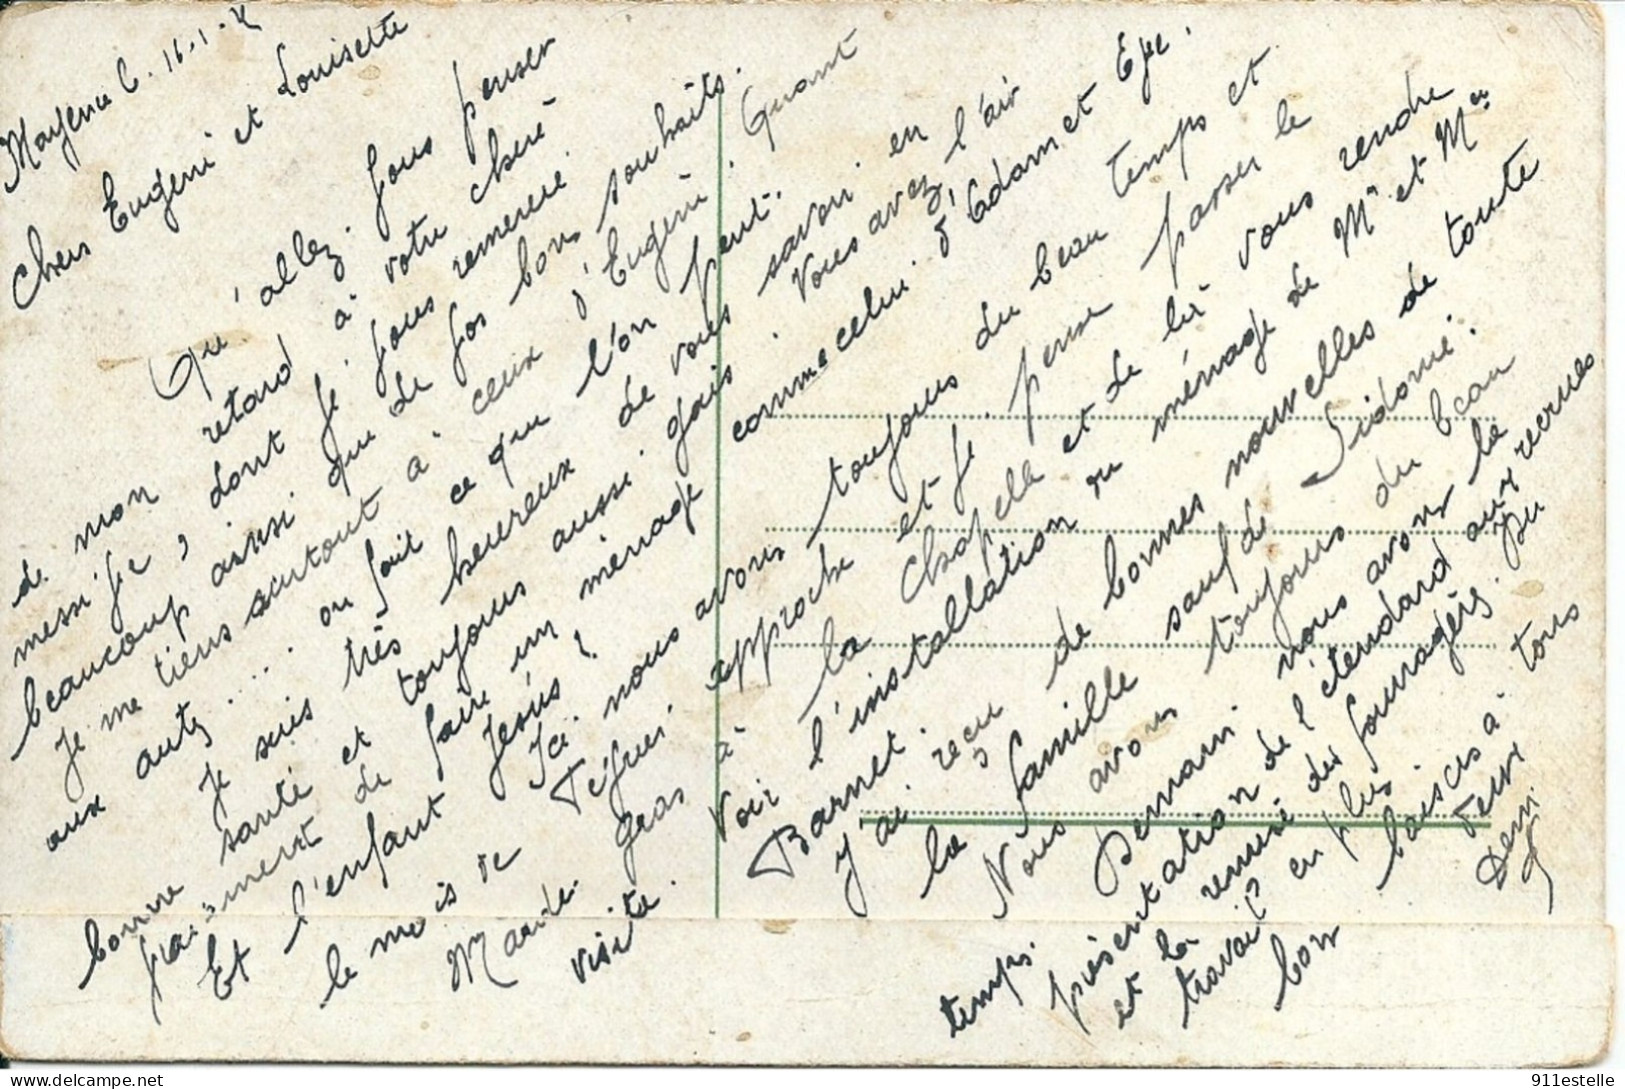 Mayence le 16-1-2
Chers Eugeni et Louisette
Qu'allez. Vous penser
de mon retard à votre cheri
messifé, dont je vous remercie.
beaucoup ainsi que de vos bons souhaits.
Je me tiens surtout à ceux d'Eugeni. Quant
aux autres.... on fait ce que l'on peut.
Je suis très heureux de vous savoir en
bonne santé et toujours aussi gais. Vous avez l'air
vraiment de faire un ménage comme celui d'Adam et Eve.
Et l'enfant Jésus?
Ici nous avons toujours du beau temps et
le mois de Février approche et je pense passer le
Mardi gras à la Chapelle et de là vous rendre
visite.
Voir l'installation du ménage de Mr et Mme
Barnet.
J'ai reçu de bonnes nouvelles de toute
la famille sauf de Sidonie.
Nous avons toujours du beau
temps. Demain nous avons la
présentation de l'étendard aux recrues
et la remise des fourragères. Du
travail en plus.
bons baisers à tous
deux
Deni
911estelle